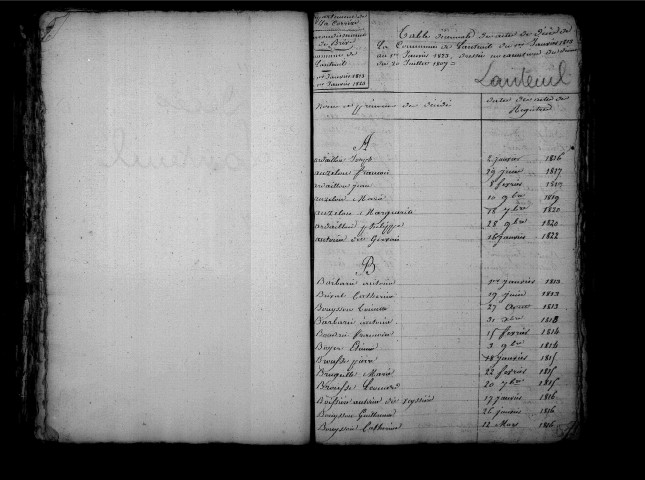 Département de
La Corrèze
arrondissement
de Brive
commune de
Lanteuil
1er Janvier 1813
1er Janvier 1823
Table décennale des actes de Décès de
La Commune de Lanteuil du 1er Janvier 1813
au 1er Janvier 1823, dressée en exécution du décret
du 20 Juillet 1807
Lanteuil
Noms et prénoms des décédés
dates des actes de
Registres
A
2 janvier 1816
auzeloux francois 29 juin 1817
ardaillou jean 8 fevrier 1819
auzeloux Marie 10 9bre 1819
auzeloux Marguerite 18 7bre 1820
ardaillou philippe 28 9bre 1820
antoine dit Gervais 16 janvier 1822
B
Barbarie antoine 1er janvier 1813
Catherine 19 juin 1813
Bouysson 27 avril 1813
Barbarie antoine 31 xbre 1813
15 fevrier 1814
Boyer 3 9bre 1814
Brousse piere 18 janvier 1815
Marie 22 fevrier 1815
Brousse Leonard 20 7bre 1815
antoine de 17 janvier 1816
Bouysson Guillaume 26 janvier 1816
Bouysson Catherine 12 Mars 1816